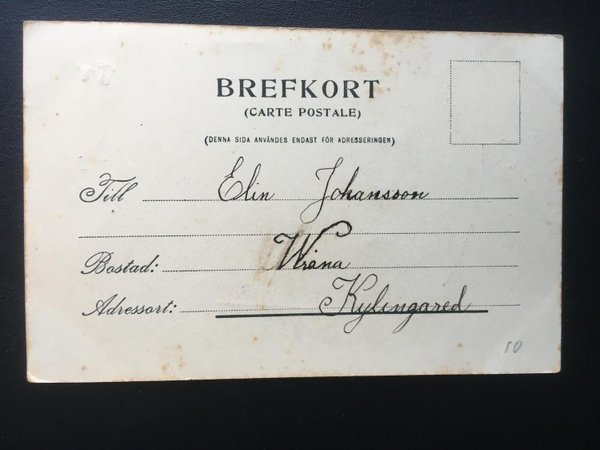 BREFKORT
(CARTE POSTALE)
(DENNA SIDA ANVÄNDES ENDAST FÖR ADRESSERINGEN)
Till Elin Johansson
Bostad: Wråna
Adressort: Kylingared
10